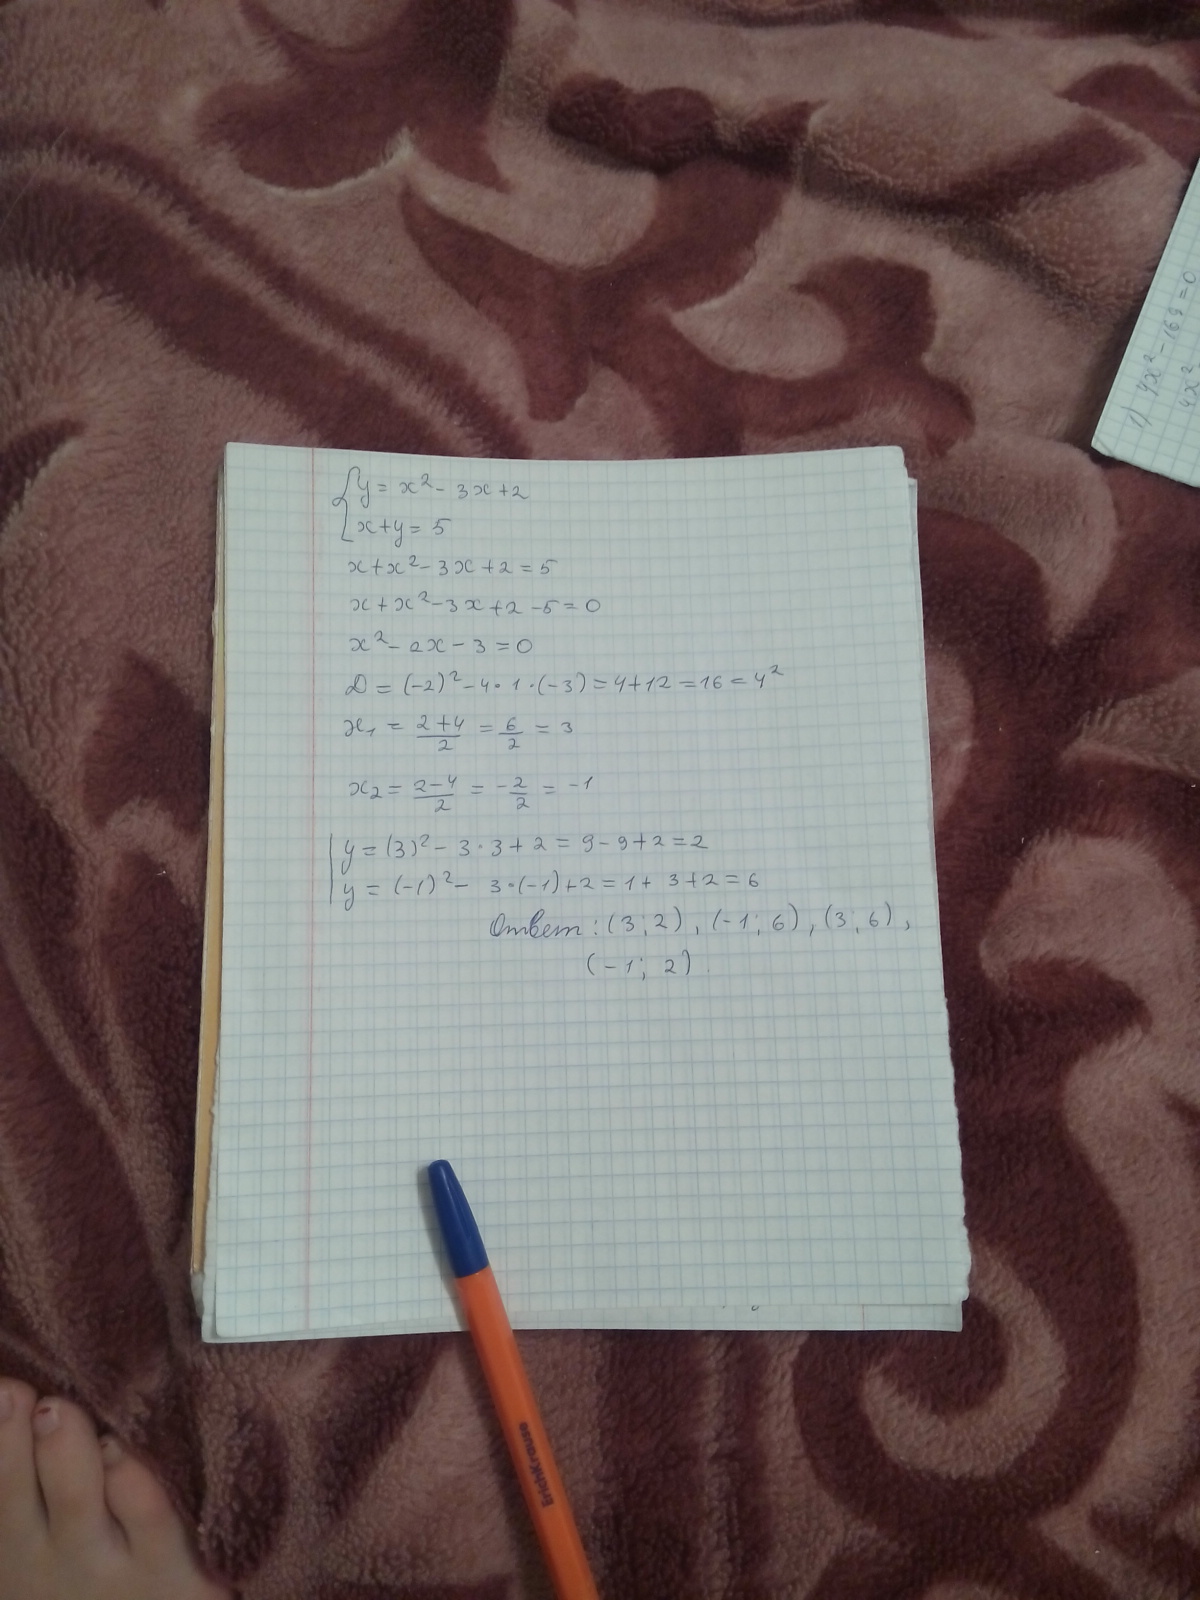 {y = x² - 3x + 2
x + y = 5
x + x² - 3x + 2 = 5
x + x² - 3x + 2 - 5 = 0
x² - 2x - 3 = 0
D = (-2)² - 4 · 1 · (-3) = 4 + 12 = 16 = 4²
x₁ = (2+4)/2 = 6/2 = 3
x₂ = (2-4)/2 = -2/2 = -1
y = (3)² - 3 · 3 + 2 = 9 - 9 + 2 = 2
y = (-1)² - 3 · (-1) + 2 = 1 + 3 + 2 = 6
Ответ: (3; 2), (-1; 6), (3; 6),
(-1; 2).
1) 4x² - 169 = 0
4x²
ErichKrause